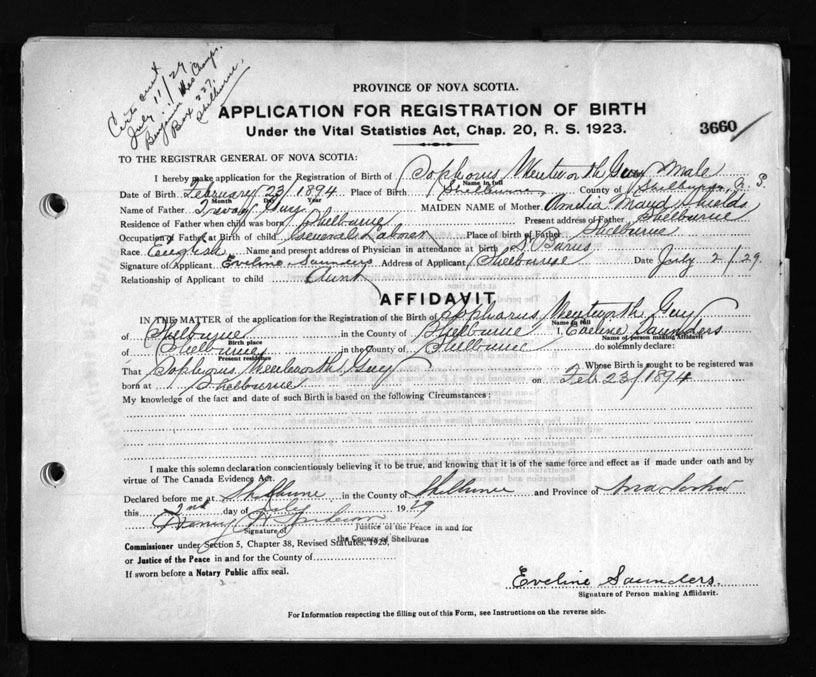 Certs out
July 11/29
Benjamin
Box 227,
Shelburne,
PROVINCE OF NOVA SCOTIA.
APPLICATION FOR REGISTRATION OF BIRTH
Under the Vital Statistics Act, Chap. 20, R. S. 1923.
3660
TO THE REGISTRAR GENERAL OF NOVA SCOTIA:
I hereby make application for the Registration of Birth of Sophorus Wentworth Guy Male
Name in full
Date of Birth February 23/1894 Place of Birth Shelburne County of Shelburne, N. S.
Month Day Year
Name of Father Guy MAIDEN NAME of Mother Amelia Maud Shields
Residence of Father when child was born Shelburne Present address of Father Shelburne
Occupation of Father at Birth of child General Laborer Place of birth of Father Shelburne
Race English Name and present address of Physician in attendance at birth
Signature of Applicant Eveline Saunders Address of Applicant Shelburne Date July 2/29.
Relationship of Applicant to child Aunt
AFFIDAVIT.
IN THE MATTER of the application for the Registration of the Birth of Sopharus Wentworth Guy
Name in full
of Shelburne in the County of Shelburne I, Eveline Saunders
Birth place Name of person making Affidavit
of Shelburne in the County of Shelburne do solemnly declare:
Present residence
That Sophorus Wentworth Guy Whose Birth is sought to be registered was
born at Shelburne on Feb 23/1894
My knowledge of the fact and date of such Birth is based on the following Circumstances:
I make this solemn declaration conscientiously believing it to be true, and knowing that it is of the same force and effect as if made under oath and by
virtue of The Canada Evidence Act.
Declared before me at Shelburne in the County of Shelburne and Province of Nova Scotia
this 2nd day of July 1929
Signature of Justice of the Peace in and for
the County of Shelburne
Commissioner under Section 5, Chapter 38, Revised Statutes, 1923,
or Justice of the Peace in and for the County of
If sworn before a Notary Public affix seal.
Eveline Saunders.
Signature of Person making Affidavit.
For Information respecting the filling out of this Form, see Instructions on the reverse side.